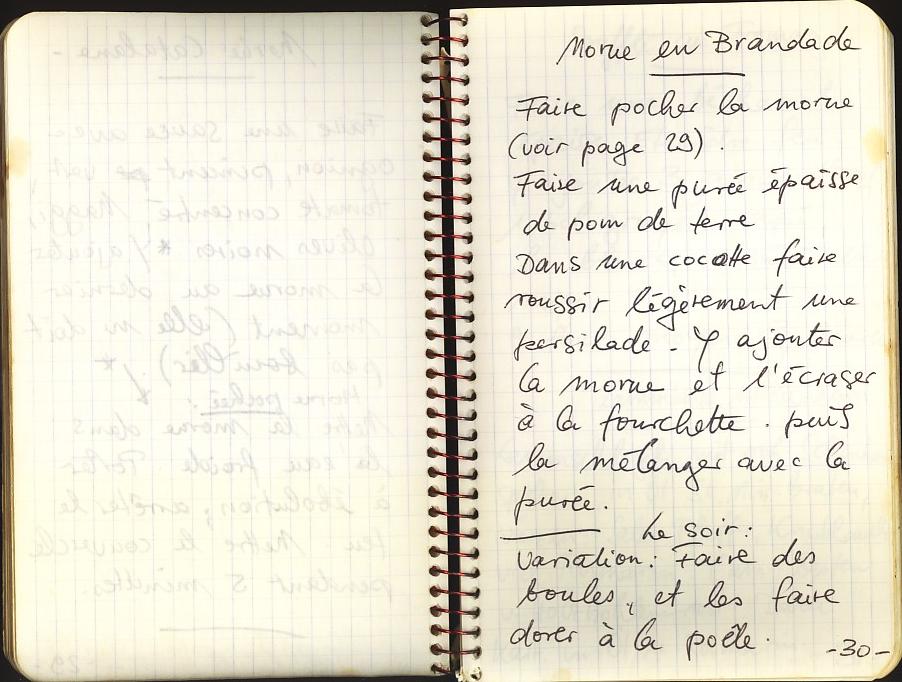 Morue en Brandade
Faire pocher la morue
(voir page 29).
Faire une purée épaisse
de pom de terre
Dans une cocotte faire
roussir légèrement une
persilade. Y ajouter
la morue et l'écraser
à la fourchette. puis
la mélanger avec la
purée.
Le soir:
Variation: Faire des
boules, et les faire
dorer à la poêle.
-30-